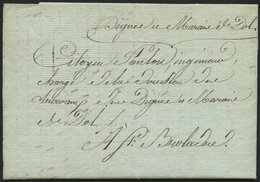 Digues et Marais de Dol.
Citoyen Pontou ingénieur,
chargé de la direction des
travaux des Digues et Marais
de Dol /
A